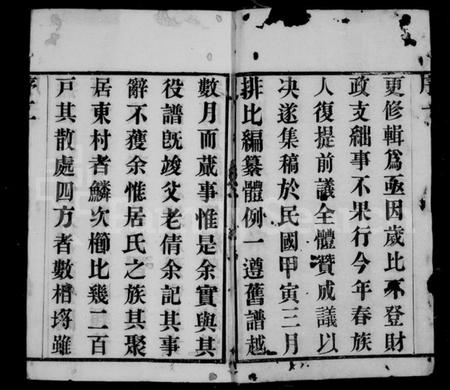 更修輯爲亟因歲比不登財
政支絀事不果行今年春族
人復提前議全體贊成議以
決遂集稿於民國甲寅三月
排比編纂體例一遵舊譜越
數月而蕆事惟是余實與其
役譜旣竣父老倩余記其事
辭不獲余惟居氏之族其聚
居東村者鱗次櫛比幾二百
戸其散處四方者數稍埒雖
序二